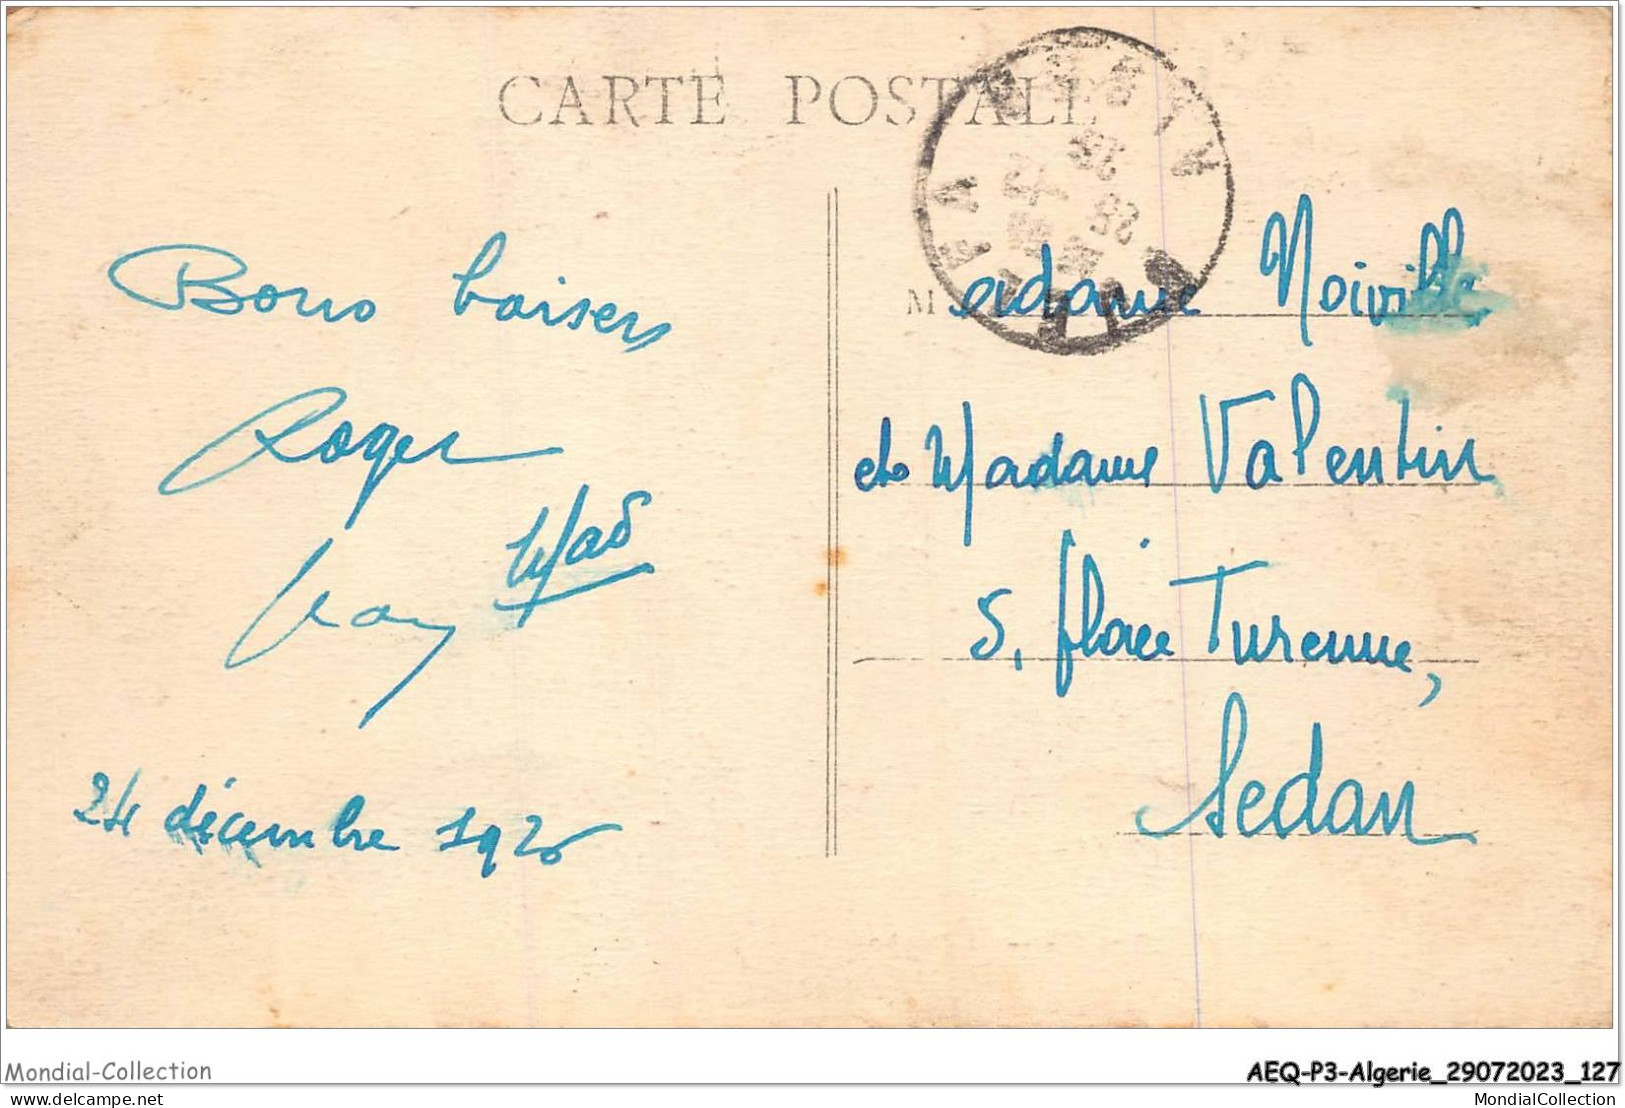 CARTE POSTALE
Bons baisers
Roger
Mad
24 décembre 1926
Madame Noiville
et Madame Valentin
5, place Turenne,
Sedan
Mondial-Collection
AEQ-P3-Algerie_29072023_127
delcampe.net
MondialCollection